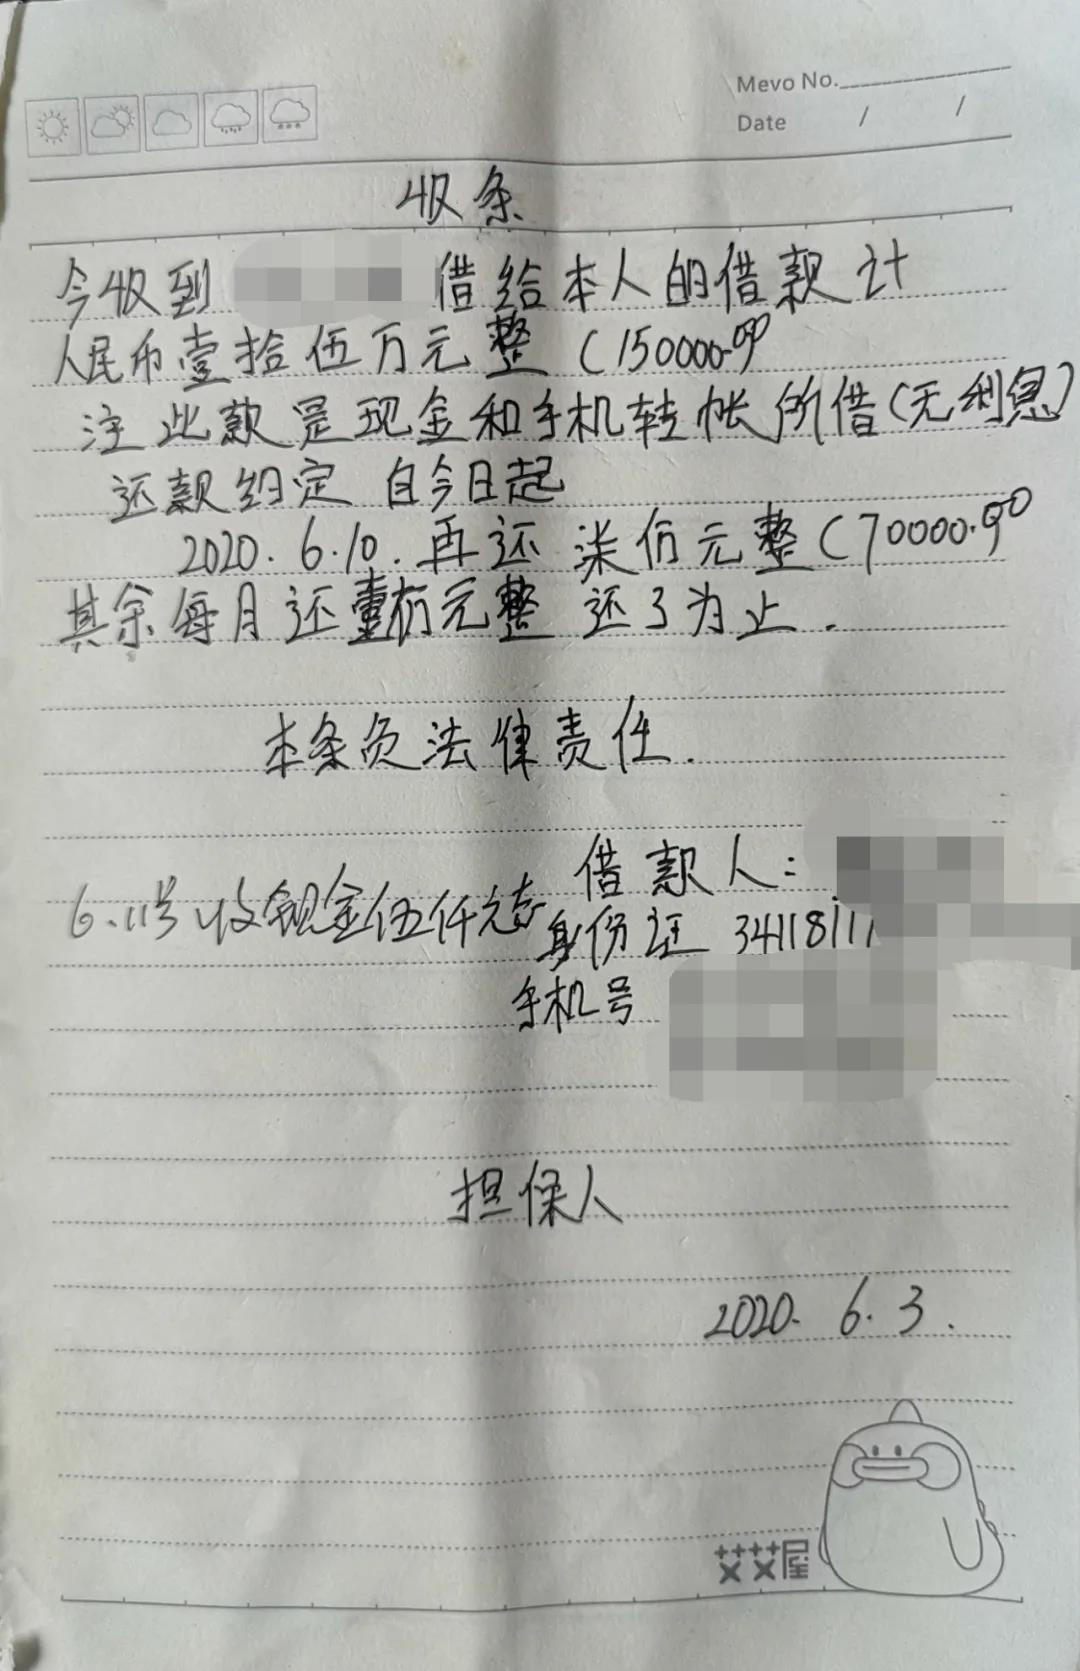 Mevo No.
Date / /
收条
今收到 借给本人的借款计
人民币壹拾伍万元整(150000.00
注此款是现金和手机转帐所借(无利息)
还款约定 自今日起
2020.6.10.再还 柒仟元整(70000.00
其余每月还壹仟元整 还了为止.
本条负法律责任.
借款人:
6.11号收现金伍仟元
身份证 34118111
手机号
担保人
2020. 6. 3.
艾艾屋